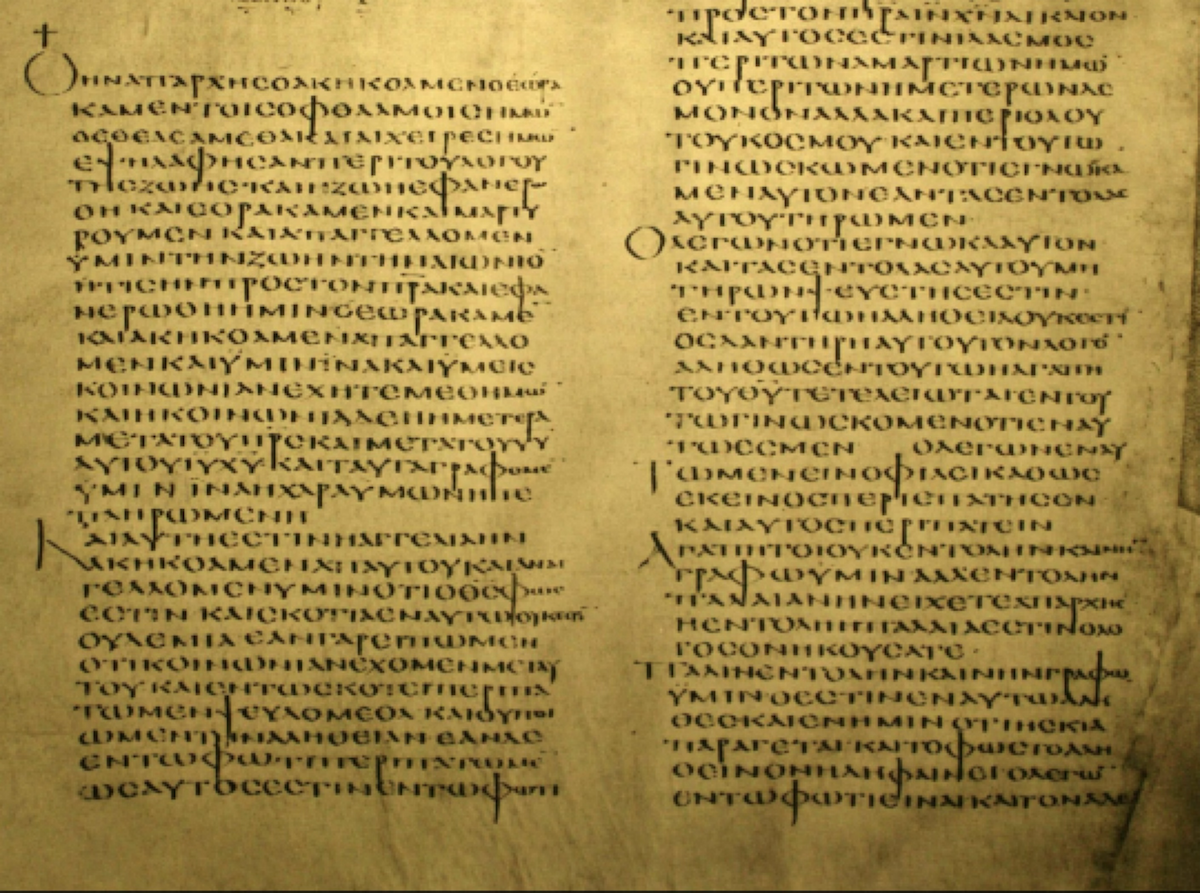 †
ΟΗΝΑΠΑΡΧΗϹΟΑΚΗΚΟΑΜΕΝΟΕΩΡΑ
ΚΑΜΕΝΤΟΙϹΟΦΘΑΛΜΟΙϹΗΜΩ̅
ΟΕΘΕΑϹΑΜΕΘΑΚΑΙΑΙΧΕΙΡΕϹΗΜΩ̅
ΕΨΗΛΑΦΗϹΑΝΠΕΡΙΤΟΥΛΟΓΟΥ
ΤΗϹΖΩΗϹ·ΚΑΙΗΖΩΗΕΦΑΝΕΡ
ΘΗΚΑΙΕΟΡΑΚΑΜΕΝΚΑΙΜΑΡΤΥ
ΡΟΥΜΕΝΚΑΙΑΠΑΓΓΕΛΛΟΜΕΝ
ΫΜΙΝΤΗΝΖΩΗΝΤΗΝΑΙΩΝΙΟ̅
ΗΤΙϹΗΝΠΡΟϹΤΟΝΠ̅Ρ̅Α̅ΚΑΙΕΦΑ
ΝΕΡΩΘΗΗΜΙΝΟΕΩΡΑΚΑΜΕ̅
ΚΑΙΑΚΗΚΟΑΜΕΝΑΠΑΓΓΕΛΛΟ
ΜΕΝΚΑΙΫΜΙΝΪΝΑΚΑΙΫΜΕΙϹ
ΚΟΙΝΩΝΙΑΝΕΧΗΤΕΜΕΘΗΜΩ̅
ΚΑΙΗΚΟΙΝΩΝΙΑΔΕΗΗΜΕΤΕΡΑ
ΜΕΤΑΤΟΥΠ̅Ρ̅Ϲ̅ΚΑΙΜΕΤΑΤΟΥΥ̅Υ̅
ΑΥΤΟΥΙ̅Υ̅Χ̅Υ̅·ΚΑΙΤΑΥΤΑΓΡΑΦΟΜΕ̅
ΫΜΙΝΪΝΑΗΧΑΡΑΥΜΩΝΗΠΕ
ΠΛΗΡΩΜΕΝΗ
ΚΑΙΑΥΤΗΕϹΤΙΝΗΑΓΓΕΛΙΑΗΝ
ΑΚΗΚΟΑΜΕΝΑΠΑΥΤΟΥΚΑΙΑΝΑΓ
ΓΕΛΛΟΜΕΝΥΜΙΝΟΤΙΟΘ̅Ϲ̅ΦΩϹ
ΕϹΤΙΝΚΑΙϹΚΟΤΙΑΕΝΑΥΤΩΟΥΚΕϹΤΙ̅
ΟΥΔΕΜΙΑΕΑΝΓΑΡΕΙΠΩΜΕΝ
ΟΤΙΚΟΙΝΩΝΙΑΝΕΧΟΜΕΝΜΕΤΑΥ
ΤΟΥΚΑΙΕΝΤΩϹΚΟΤΕΙΠΕΡΙΠΑ
ΤΩΜΕΝΨΕΥΔΟΜΕΘΑΚΑΙΟΥΠΟΙ
ΩΜΕΝΤΗΝΑΛΗΘΕΙΑΝΕΑΝΔΕ
ΕΝΤΩΦΩΤΙΠΕΡΙΠΑΤΩΜΕ̅
ΩϹΑΥΤΟϹΕϹΤΙΝΕΝΤΩΦΩΤΙ
ΠΡΟϹΤΟΝΠ̅Ρ̅Α̅Ι̅Ν̅Χ̅Ν̅ΔΙΚΑΙΟΝ
ΚΑΙΑΥΤΟϹΕϹΤΙΝΙΛΑϹΜΟϹ
ΠΕΡΙΤΩΝΑΜΑΡΤΙΩΝΗΜΩ̅
ΟΥΠΕΡΙΤΩΝΗΜΕΤΕΡΩΝΔΕ
ΜΟΝΟΝΑΛΛΑΚΑΙΠΕΡΙΟΛΟΥ
ΤΟΥΚΟϹΜΟΥ·ΚΑΙΕΝΤΟΥΤΩ
ΓΙΝΩϹΚΩΜΕΝΟΤΙΕΓΝΩΚΑ
ΜΕΝΑΥΤΟΝΕΑΝΤΑϹΕΝΤΟΛΑϹ
ΑΥΤΟΥΤΗΡΩΜΕΝ
ΟΛΕΓΩΝΟΤΙΕΓΝΩΚΑΑΥΤΟΝ
ΚΑΙΤΑϹΕΝΤΟΛΑϹΑΥΤΟΥΜΗ
ΤΗΡΩΝΨΕΥϹΤΗϹΕϹΤΙΝ
ΕΝΤΟΥΤΩΗΑΛΗΘΕΙΑΟΥΚΕϹΤΙ̅
ΟϹΔΑΝΤΗΡΗΑΥΤΟΥΤΟΝΛΟΓΟ̅
ΑΛΗΘΩϹΕΝΤΟΥΤΩΗΑΓΑΠΗ
ΤΟΥΘ̅Υ̅ΤΕΤΕΛΕΙΩΤΑΙΕΝΤΟΥ
ΤΩΓΙΝΩϹΚΟΜΕΝΟΤΙΕΝΑΥ
ΤΩΕϹΜΕΝ ΟΛΕΓΩΝΕΝΑΥ
ΤΩΜΕΝΕΙΝΟΦΙΛΕΙΚΑΘΩϹ
ΕΚΕΙΝΟϹΠΕΡΙΕΠΑΤΗϹΕΝ
ΚΑΙΑΥΤΟϹΠΕΡΙΠΑΤΕΙΝ
ΑΓΑΠΗΤΟΙΟΥΚΕΝΤΟΛΗΝΚΑΙΝΗ̅
ΓΡΑΦΩΥΜΙΝΑΛΛΕΝΤΟΛΗΝ
ΠΑΛΑΙΑΝΗΝΕΙΧΕΤΕΑΠΑΡΧΗϹ
ΗΕΝΤΟΛΗΗΠΑΛΑΙΑΕϹΤΙΝΟΛΟ
ΓΟϹΟΝΗΚΟΥϹΑΤΕ·
ΠΑΛΙΝΕΝΤΟΛΗΝΚΑΙΝΗΝΓΡΑΦΩ
ΫΜΙΝΟΕϹΤΙΝΕΝΑΥΤΩΑΛΗ
ΘΕϹΚΑΙΕΝΗΜΙΝΟΤΙΗϹΚΙΑ
ΠΑΡΑΓΕΤΑΙΚΑΙΤΟΦΩϹΤΟΑΛΗ
ΘΕΙΝΟΝΗΔΗΦΑΙΝΕΙΟΛΕΓΩ̅
ΕΝΤΩΦΩΤΙΕΙΝΑΙΚΑΙΤΟΝΑΔΕΛ